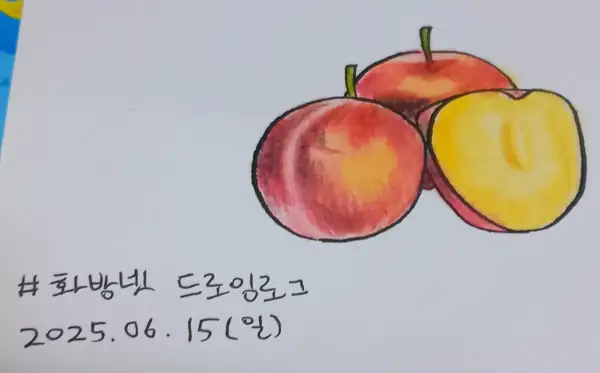 # 화방넷 드로잉로그
2025.06.15(일)